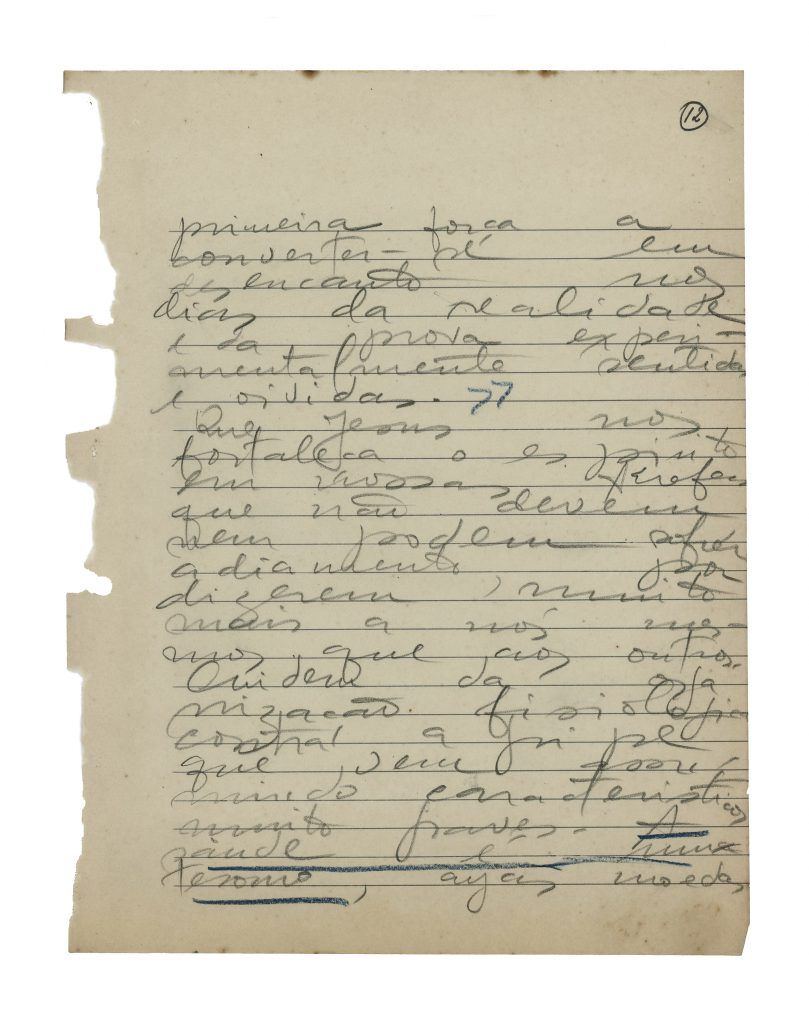 12
primeira força a
converter-se em
desencanto nos
dias da realidade
e da prova experi-
mentalmente sentidas
e vividas. »
Que Jesus nos
fortaleça o espirito
em nossas tarefas
que não devem
nem podem sofrer
adiamento por
dizerem, muito
mais a nós mes-
mos que aos outros.
Cuidem da orga
nização fisiologica
contra a gripe
que vem assu-
mindo caracteristicos
muito graves. A
saúde é um
tesouro, cujas moedas